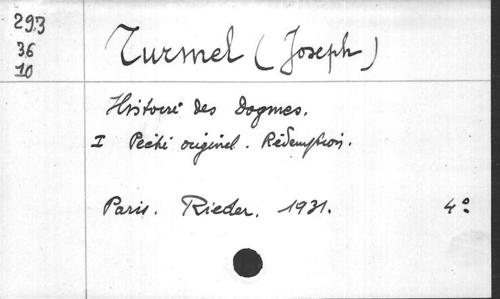 293
36
10
Turmel (Joseph)
Histoire des Dogmes.
I Péché originel. Rédemption.
Paris. Rieder. 1931. 4°